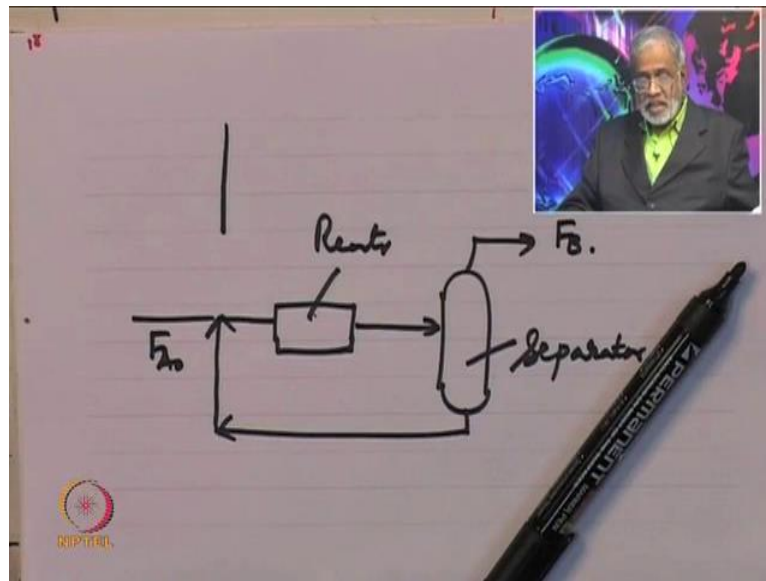 18
Reactor
F_B.
F_A0
Separator
PERMANENT
NPTEL